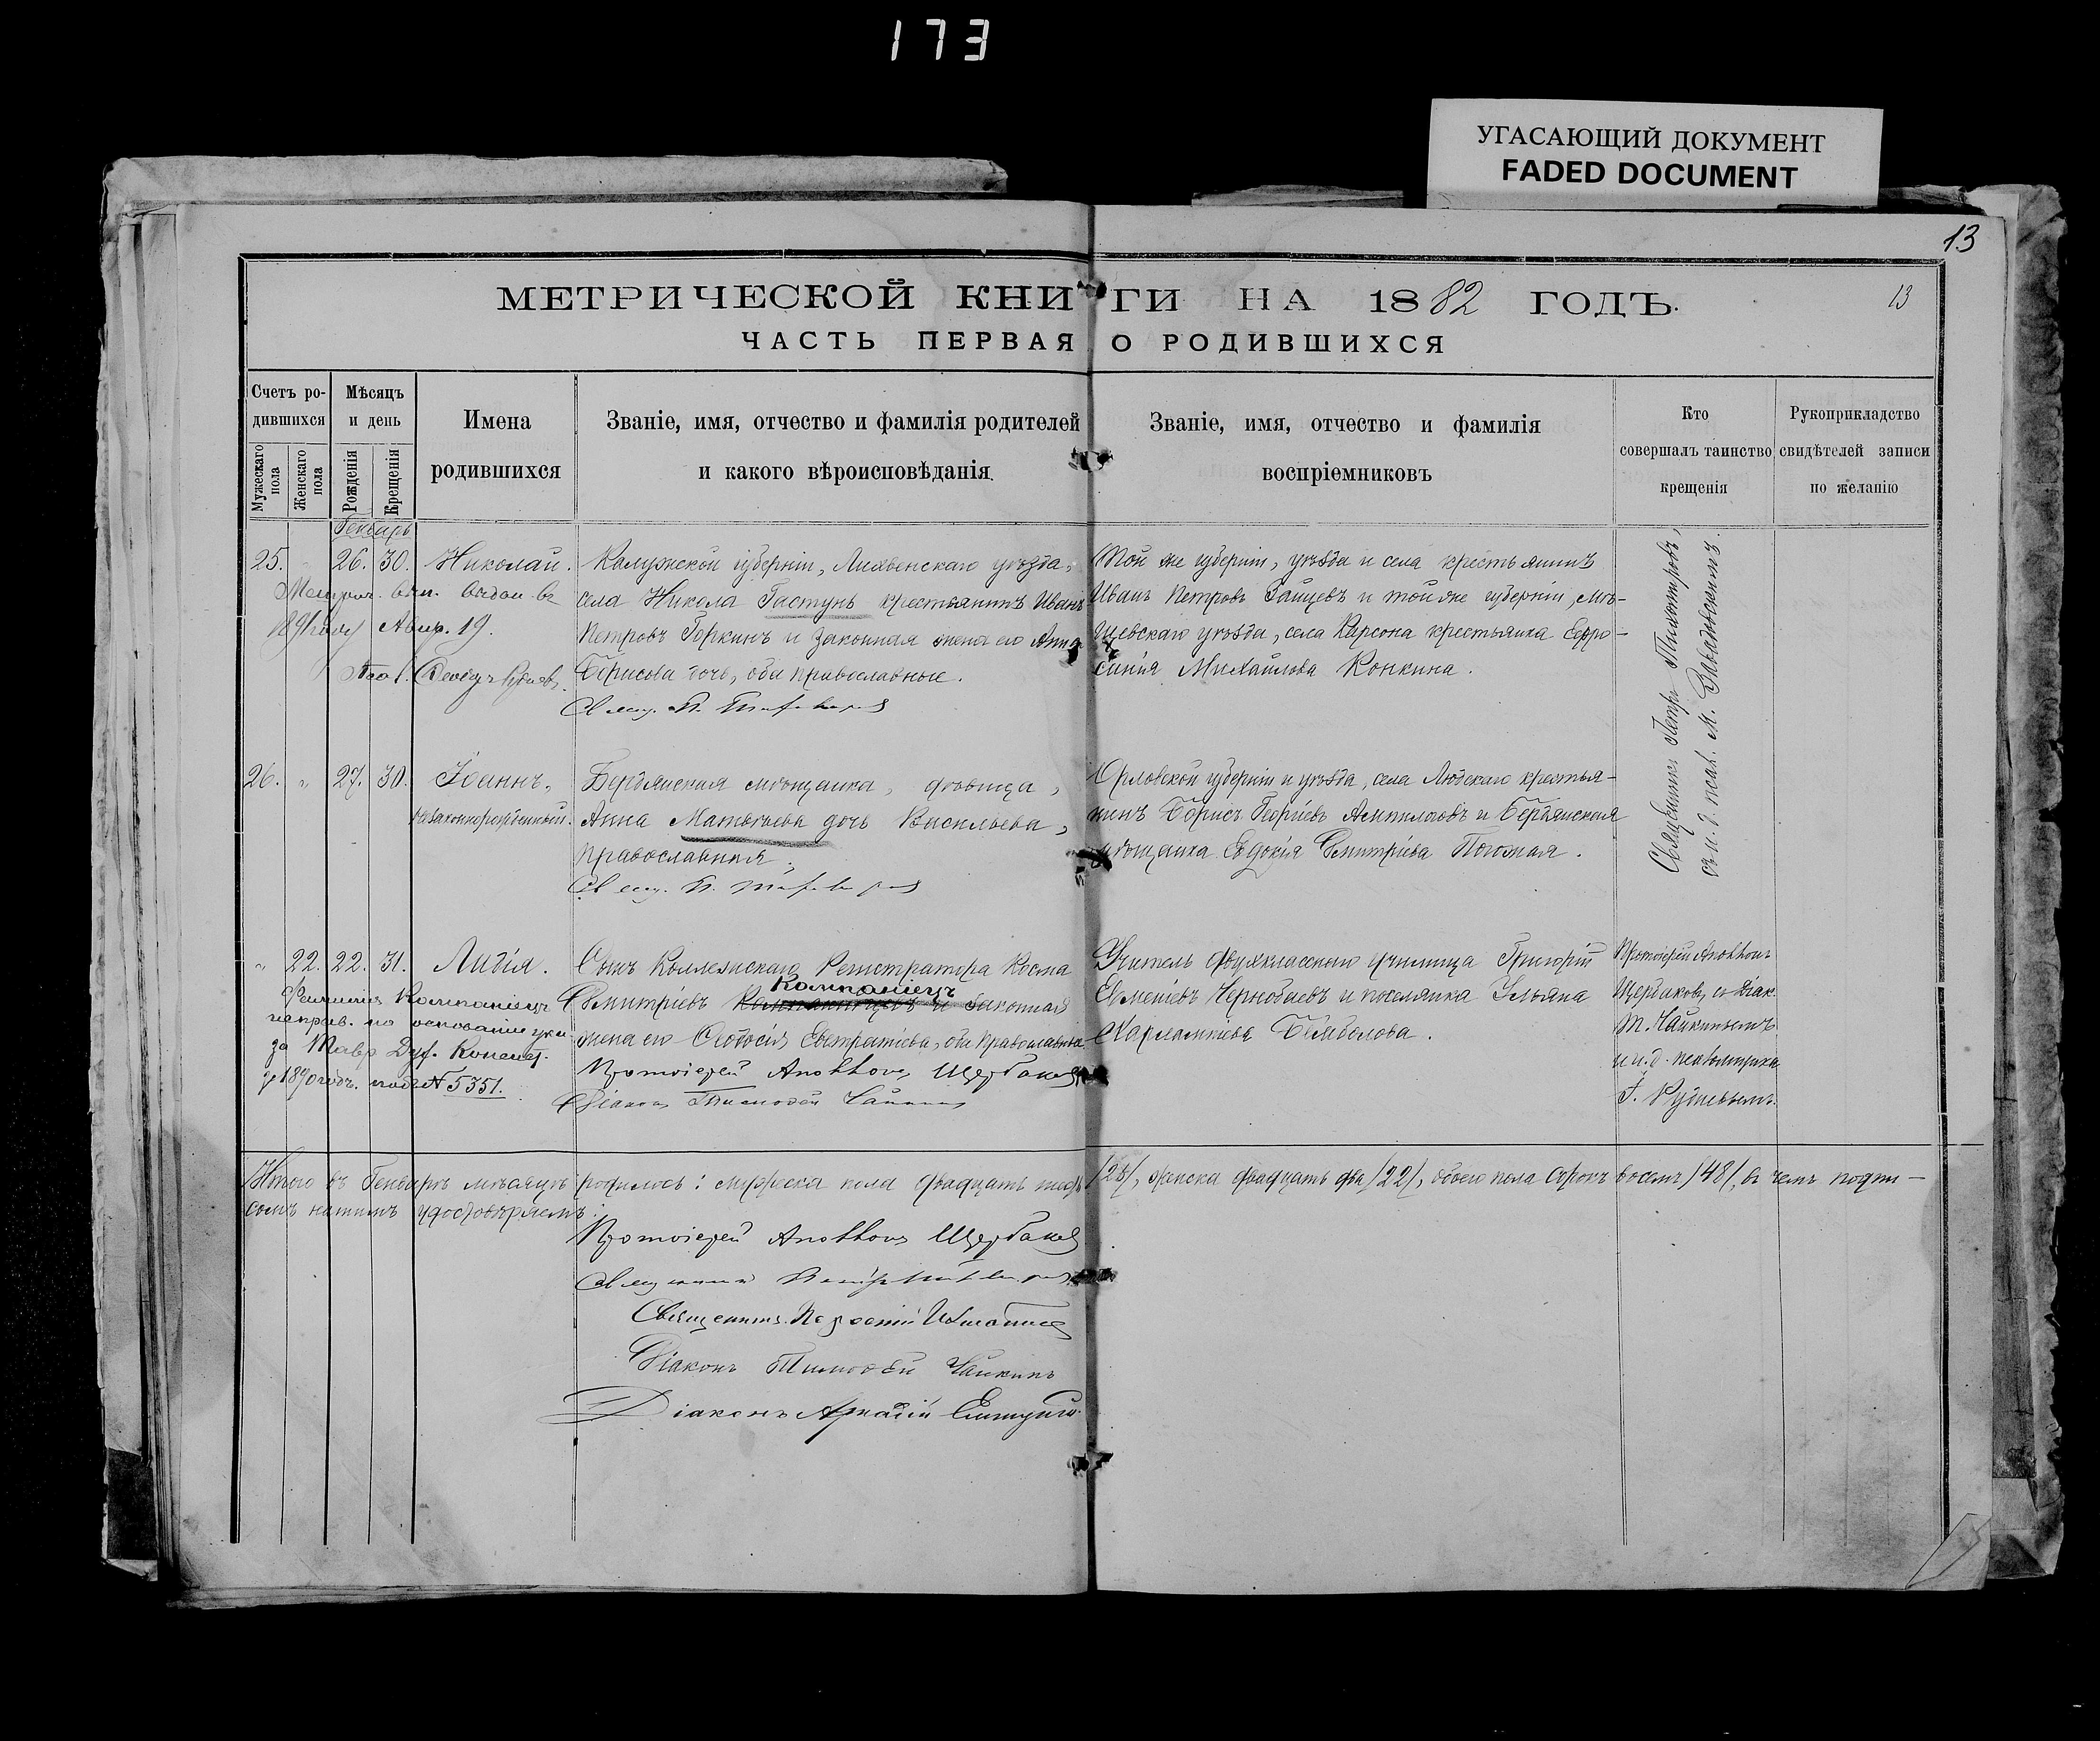 173
УГАСАЮЩИЙ ДОКУМЕНТ
FADED DOCUMENT
13
МЕТРИЧЕСКОЙ КНИГИ НА 1882 ГОДЪ.
13
ЧАСТЬ ПЕРВАЯ О РОДИВШИХСЯ
Счетъ родившихся
Мужескаго пола
Женскаго пола
Мѣсяцъ и день
Рожденія
Крещенія
Имена родившихся
Званіе, имя, отчество и фамилія родителей
и какого вѣроисповѣданія.
Званіе, имя, отчество и фамилія
воспріемниковъ
Кто
совершалъ таинство
крещенія
Рукоприкладство
свидѣтелей записи
по желанію
Генварь
25. " 26. 30. Николай.
Метрич. вып. выдан въ
1891 году Апр. 19.
Калужской губерніи, Лихвенскаго уѣзда,
села Никола Гастунь крестьянинъ Иванъ
Петровъ Горкинъ и законная жена его Анна
Борисова дочь, оба православные.
Той же губерніи, уѣзда и села крестьянинъ
Иванъ Петровъ Гайцевъ и той же губерніи, Мѣ-
щевскаго уѣзда, села Карсона крестьянка Евфро-
синія Михайлова Конкина.
Священникъ Петръ
съ и. д. псал. М.
26. " 27. 30. Іоаннъ,
незаконнорожденный.
Бердянская мѣщанка, дѣвица,
Анна Матвѣева дочь Васильева,
православная.
Орловской губерніи и уѣзда, села Людскаго крестья-
нинъ Борисъ Георгіевъ и Бердянская
мѣщанка Евдокія Димитріева
" 22. 22. 31. Лидія.
Фамилія Компаніецъ
исправ. на основаніи указа
Тавр. Дух. Консист.
за 1890 годъ. подъ № 5351.
Сынъ Коллежскаго Регистратора Косма
Компаніецъ
Димитріевъ и законная
жена его Ѳеодосія Евстратіева, оба православные.
Протоіерей Щербаковъ
Діаконъ Тимоѳей Чайкинъ
Учитель двухкласснаго училища Григорій
Евменіевъ Чернобаевъ и поселянка Ульяна
Харлампіева
Протоіерей
Щербаковъ, съ діак.
Т. Чайкинымъ
и и. д. псаломщика
Итого въ Генварѣ мѣсяцѣ родилось: мужеска пола двадцать шесть /26/, женска двадцать два /22/, обоего пола сорокъ восемь /48/, въ чемъ подпи-
сомъ нашимъ удостовѣряемъ:
Протоіерей Щербаковъ
Священникъ Петръ
Священникъ
Діаконъ Тимоѳей Чайкинъ
Діаконъ Аркадій